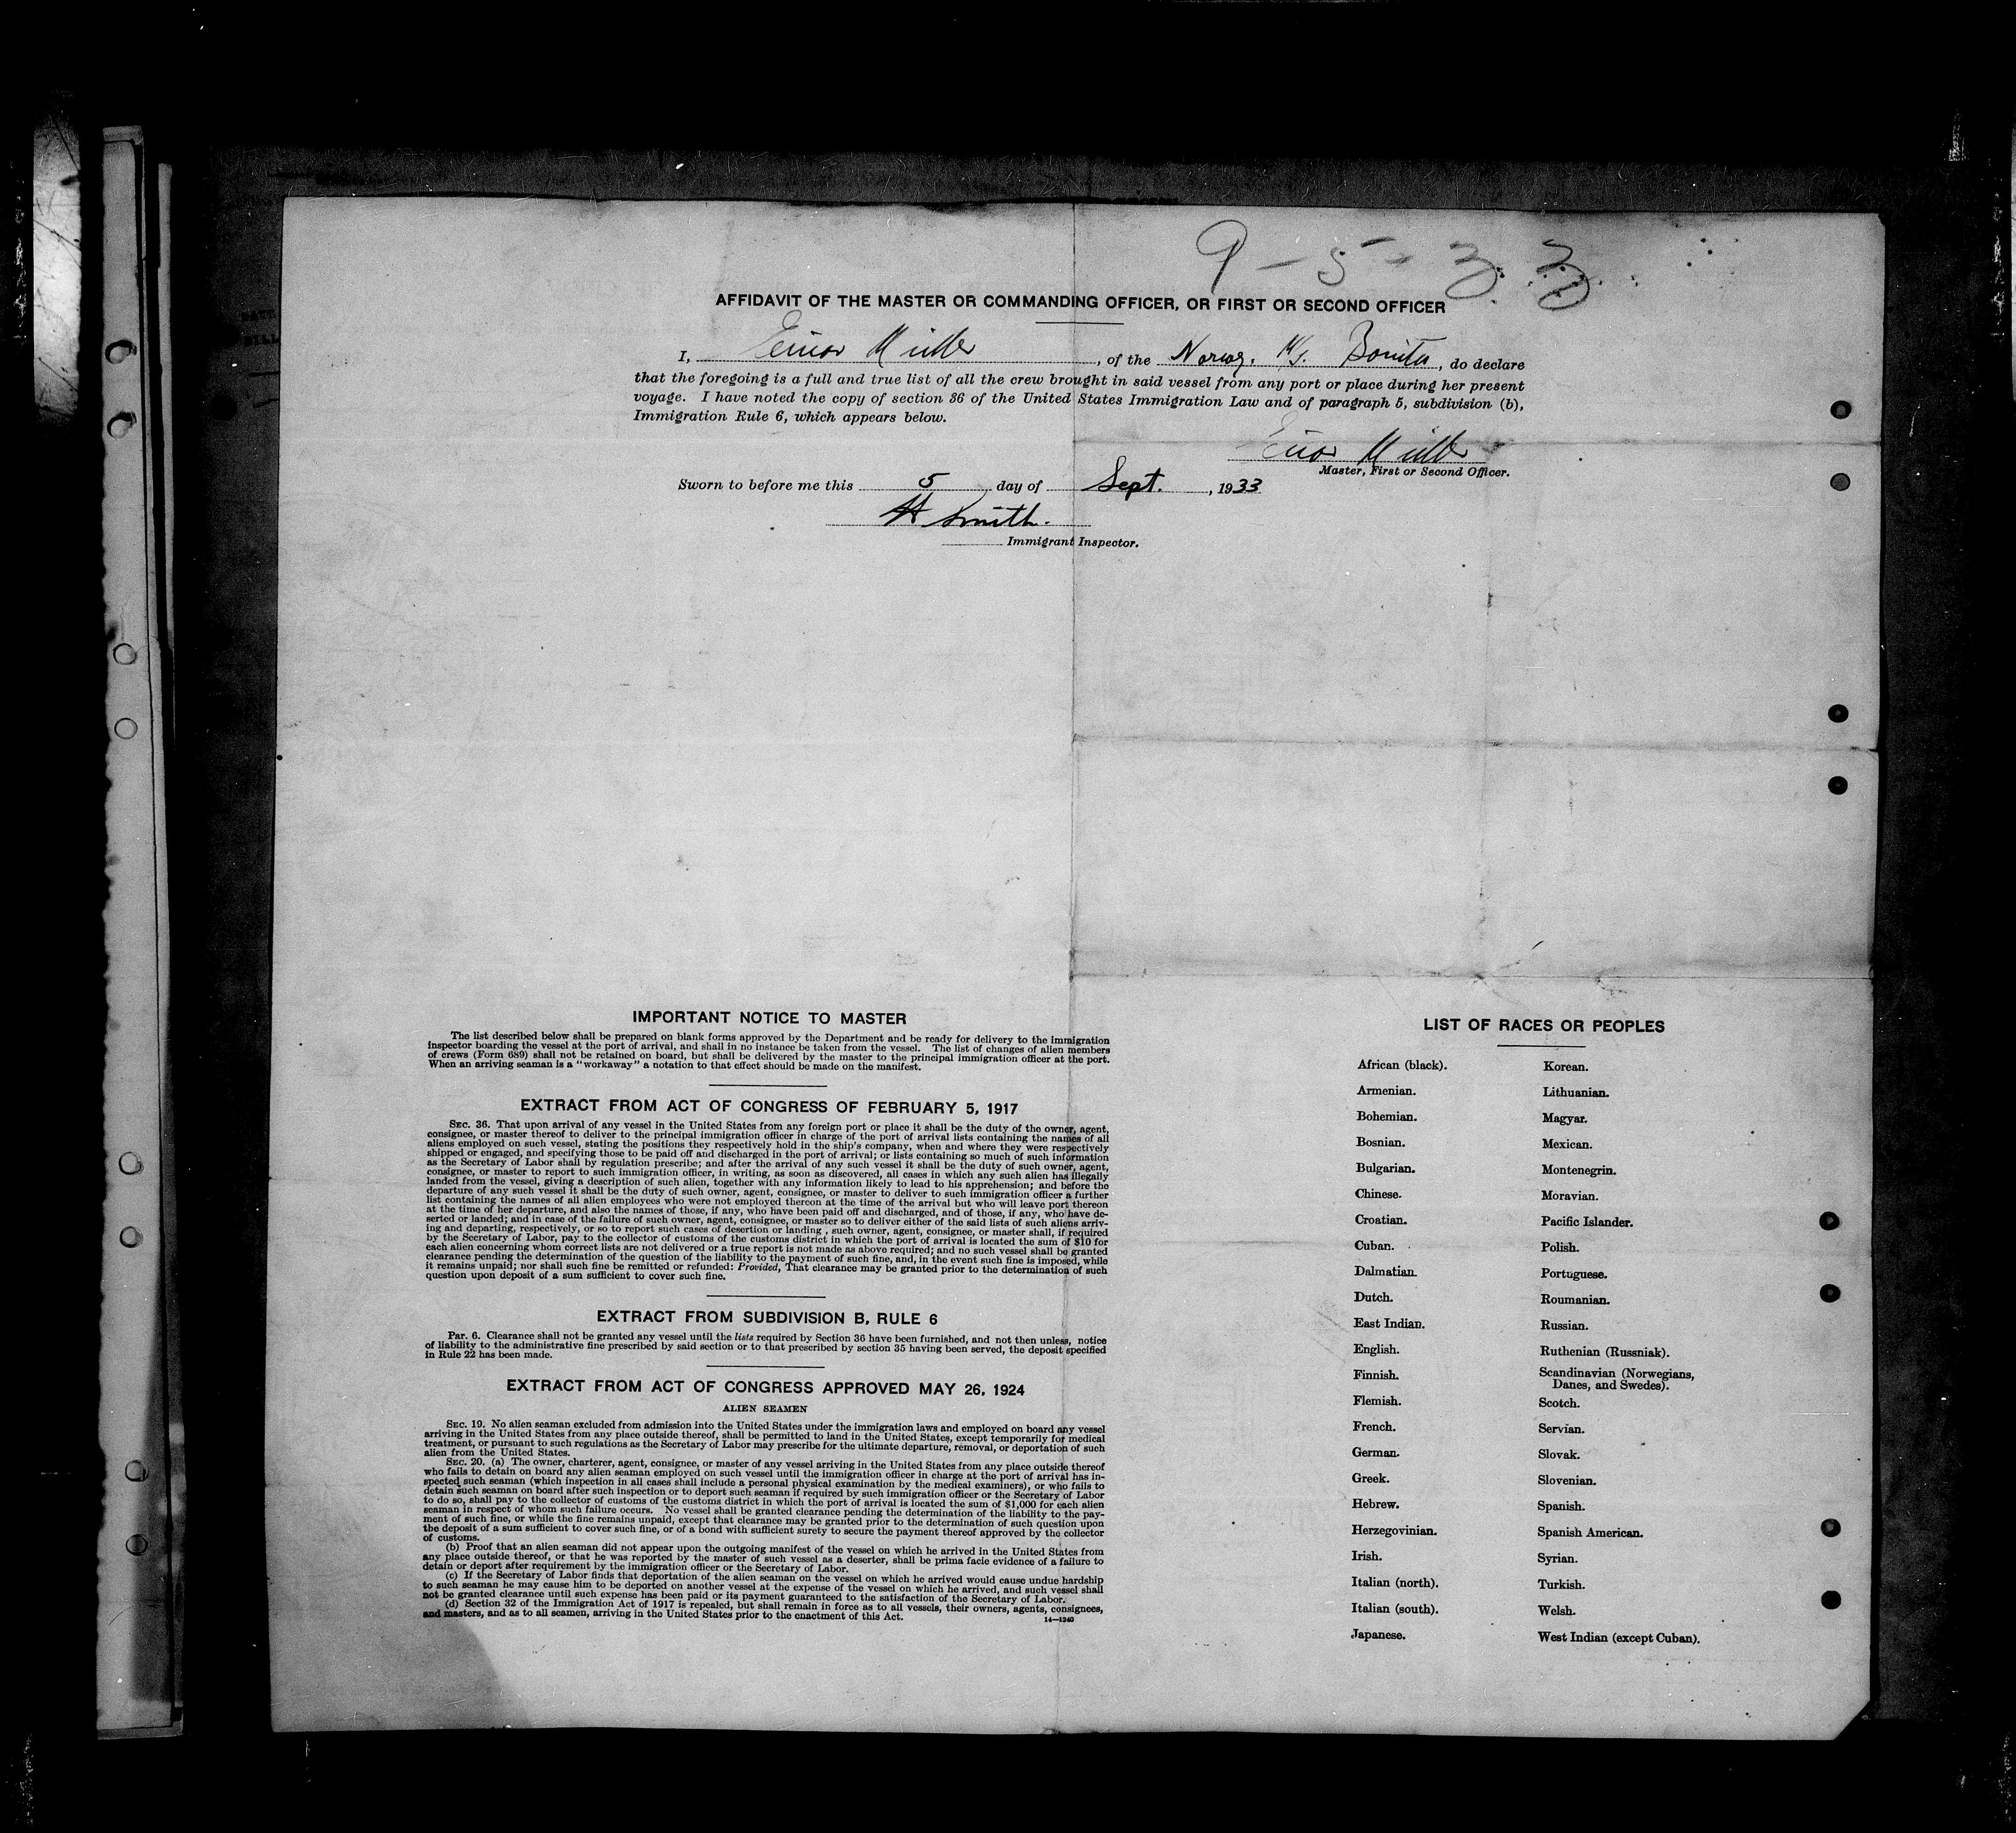 9-5-33
AFFIDAVIT OF THE MASTER OR COMMANDING OFFICER, OR FIRST OR SECOND OFFICER
I, Einar Müller, of the Norweg. M/S. Bonita, do declare
that the foregoing is a full and true list of all the crew brought in said vessel from any port or place during her present
voyage. I have noted the copy of section 36 of the United States Immigration Law and of paragraph 5, subdivision (b),
Immigration Rule 6, which appears below.
Einar Müller
Master, First or Second Officer.
Sworn to before me this 5 day of Sept., 1933
H Smith.
Immigrant Inspector.
IMPORTANT NOTICE TO MASTER
The list described below shall be prepared on blank forms approved by the Department and be ready for delivery to the immigration
inspector boarding the vessel at the port of arrival, and shall in no instance be taken from the vessel. The list of changes of alien members
of crews (Form 689) shall not be retained on board, but shall be delivered by the master to the principal immigration officer at the port.
When an arriving seaman is a "workaway" a notation to that effect should be made on the manifest.
EXTRACT FROM ACT OF CONGRESS OF FEBRUARY 5, 1917
SEC. 36. That upon arrival of any vessel in the United States from any foreign port or place it shall be the duty of the owner, agent,
consignee, or master thereof to deliver to the principal immigration officer in charge of the port of arrival lists containing the names of all
aliens employed on such vessel, stating the positions they respectively hold in the ship's company, when and where they were respectively
shipped or engaged, and specifying those to be paid off and discharged in the port of arrival; or lists containing so much of such information
as the Secretary of Labor shall by regulation prescribe; and after the arrival of any such vessel it shall be the duty of such owner, agent,
consignee, or master to report to such immigration officer, in writing, as soon as discovered, all cases in which any such alien has illegally
landed from the vessel, giving a description of such alien, together with any information likely to lead to his apprehension; and before the
departure of any such vessel it shall be the duty of such owner, agent, consignee, or master to deliver to such immigration officer a further
list containing the names of all alien employees who were not employed thereon at the time of the arrival but who will leave port thereon
at the time of her departure, and also the names of those, if any, who have been paid off and discharged, and of those, if any, who have de-
serted or landed; and in case of the failure of such owner, agent, consignee, or master so to deliver either of the said lists of such aliens arriv-
ing and departing, respectively, or so to report such cases of desertion or landing , such owner, agent, consignee, or master shall, if required
by the Secretary of Labor, pay to the collector of customs of the customs district in which the port of arrival is located the sum of $10 for
each alien concerning whom correct lists are not delivered or a true report is not made as above required; and no such vessel shall be granted
clearance pending the determination of the question of the liability to the payment of such fine, and, in the event such fine is imposed, while
it remains unpaid; nor shall such fine be remitted or refunded: Provided, That clearance may be granted prior to the determination of such
question upon deposit of a sum sufficient to cover such fine.
EXTRACT FROM SUBDIVISION B, RULE 6
Par. 6. Clearance shall not be granted any vessel until the lists required by Section 36 have been furnished, and not then unless, notice
of liability to the administrative fine prescribed by said section or to that prescribed by section 35 having been served, the deposit specified
in Rule 22 has been made.
EXTRACT FROM ACT OF CONGRESS APPROVED MAY 26, 1924
ALIEN SEAMEN
SEC. 19. No alien seaman excluded from admission into the United States under the immigration laws and employed on board any vessel
arriving in the United States from any place outside thereof, shall be permitted to land in the United States, except temporarily for medical
treatment, or pursuant to such regulations as the Secretary of Labor may prescribe for the ultimate departure, removal, or deportation of such
alien from the United States.
SEC. 20. (a) The owner, charterer, agent, consignee, or master of any vessel arriving in the United States from any place outside thereof
who fails to detain on board any alien seaman employed on such vessel until the immigration officer in charge at the port of arrival has in-
spected such seaman (which inspection in all cases shall include a personal physical examination by the medical examiners), or who fails to
detain such seaman on board after such inspection or to deport such seaman if required by such immigration officer or the Secretary of Labor
to do so, shall pay to the collector of customs of the customs district in which the port of arrival is located the sum of $1,000 for each alien
seaman in respect of whom such failure occurs. No vessel shall be granted clearance pending the determination of the liability to the pay-
ment of such fine, or while the fine remains unpaid, except that clearance may be granted prior to the determination of such question upon
the deposit of a sum sufficient to cover such fine, or of a bond with sufficient surety to secure the payment thereof approved by the collector
of customs.
(b) Proof that an alien seaman did not appear upon the outgoing manifest of the vessel on which he arrived in the United States from
any place outside thereof, or that he was reported by the master of such vessel as a deserter, shall be prima facie evidence of a failure to
detain or deport after requirement by the immigration officer or the Secretary of Labor.
(c) If the Secretary of Labor finds that deportation of the alien seaman on the vessel on which he arrived would cause undue hardship
to such seaman he may cause him to be deported on another vessel at the expense of the vessel on which he arrived, and such vessel shall
not be granted clearance until such expense has been paid or its payment guaranteed to the satisfaction of the Secretary of Labor.
(d) Section 32 of the Immigration Act of 1917 is repealed, but shall remain in force as to all vessels, their owners, agents, consignees,
and masters, and as to all seamen, arriving in the United States prior to the enactment of this Act.
14—1240
LIST OF RACES OR PEOPLES
African (black).
Armenian.
Bohemian.
Bosnian.
Bulgarian.
Chinese.
Croatian.
Cuban.
Dalmatian.
Dutch.
East Indian.
English.
Finnish.
Flemish.
French.
German.
Greek.
Hebrew.
Herzegovinian.
Irish.
Italian (north).
Italian (south).
Japanese.
Korean.
Lithuanian.
Magyar.
Mexican.
Montenegrin.
Moravian.
Pacific Islander.
Polish.
Portuguese.
Roumanian.
Russian.
Ruthenian (Russniak).
Scandinavian (Norwegians,
Danes, and Swedes).
Scotch.
Servian.
Slovak.
Slovenian.
Spanish.
Spanish American.
Syrian.
Turkish.
Welsh.
West Indian (except Cuban).